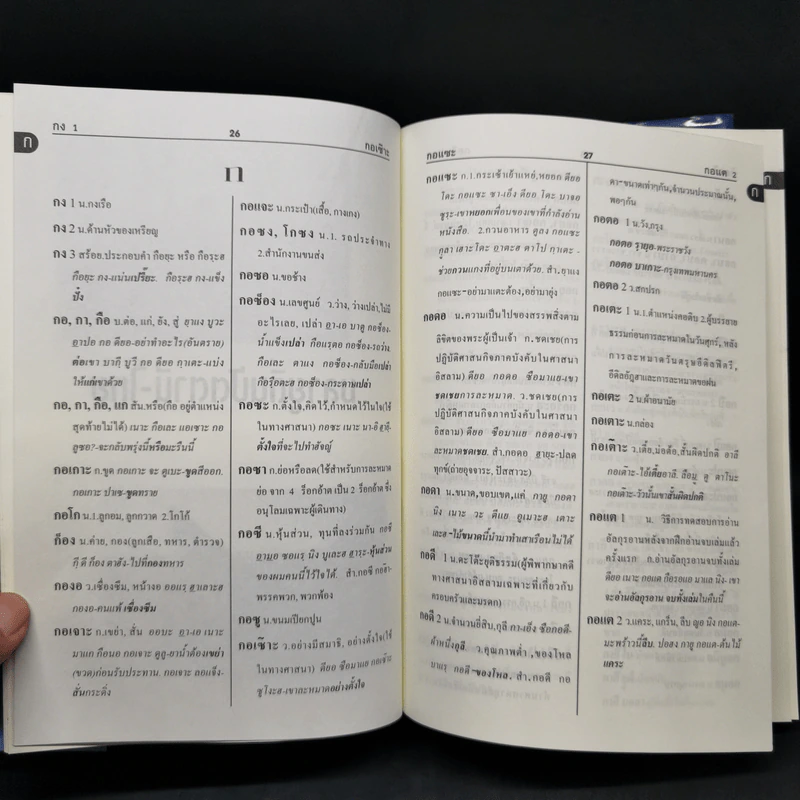 กง 1
26
กอเซ๊าะ
ก
ก
กง 1 น.กงเรือ
กง 2 น.ด้านหัวของเหรียญ
กง 3 สร้อย.ประกอบคำ กือยะ หรือ กือรฺะฮ
กือยะ กง-แน่นเปรี๊ยะ. กือรฺะฮ กง-แข็ง
ปั๋ง
กอ, กา, กือ บ.ต่อ, แก่, ยัง, สู่ ฮฺาแง บูวะ
ต่อเขา บากี บูรี กอ ดียอ กาเตะ-แบ่ง
ให้แก่เขาด้วย
กอ, กา, กือ, แก สัน.หรือ(กือ อยู่ตำแหน่ง
สุดท้ายไม่ได้) เนาะ กือและ แอเซาะ กอ
ลูซอ?-จะกลับพรุ่งนี้หรือมะรืนนี้
กอเกาะ ก.ขูด กอเกาะ จะ ดูเบะ-ขูดสีออก.
กอเกาะ ปาเซ-ขูดทราย
กอโก น.1.ลูกอม, ลูกกวาด 2.โกโก้
ก็อง น.ค่าย, กอง(ลูกเสือ, ทหาร, ตำรวจ)
กูดี ก็อง ดาฮัง-ไปที่กองทหาร
กองอ ว.เซื่องซึม, หน้างอ ออแร ฮฺาเลาะฮ
กองอ-คนแพ้เซื่องซึม
กอเจาะ ก.เขย่า, สั่น ออบะ ฮฺา-เอ เนาะ
มาแก กือนอ กอเจาะ ดูลู-ยาน้ำต้องเขย่า
(ขวด)ก่อนรับประทาน. กอเจาะ ลอแล็ง-
สั่นกระดิ่ง
กอแจะ น.กระเป๋า(เสื้อ, กางเกง)
กอซง, โกซง น.1. รถประจำทาง
2.สำนักงานขนส่ง
กอซอ น.ขอช้าง
กอซ็อง น.เลขศูนย์ ว.ว่าง, ว่างเปล่า,ไม่มี
อะไรเลย, เปล่า ฮฺา-เอ บาตู กอซ็อง-
น้ำแข็งเปล่า กือแรฺตอ กอซ็อง-รถว่าง.
กือเละ ตาแง กอซ็อง-กลับมือเปล่า
กือรฺือตะฮ กอซ็อง-กระดาษเปล่า
กอซะ ก.ตั้งใจ,คิดไว้,กำหนดไว้ในใจ(ใช้
ในทางศาสนา) กอซะ เนาะ นา-อิ ฮฺายี-
ตั้งใจที่จะไปทำฮัจญ์
กอซา ก.ย่อหรือลด(ใช้สำหรับการละหมาด
ย่อ จาก 4 ร็อกอ๊าต เป็น 2 ร็อกอ๊าต ซึ่ง
อนุโลมเฉพาะผู้เดินทาง)
กอซี น.หุ้นส่วน, ทุนที่ลงร่วมกัน กอซี
ของผมคนนี้ไว้ใจได้. สำ.กอซี กอฮฺา-
พรรคพวก, พวกพ้อง
กอซู น.ขนมเปียกปูน
กอเซ๊าะ ว.อย่างมีสมาธิ, อย่างตั้งใจ(ใช้
ในทางศาสนา) ดียอ ซือมาแย กอเซ๊าะ
ซูโงะฮ-เขาละหมาดอย่างตั้งใจ
กอแซะ
27
กอแต 2
ก
ก
กอแซะ ก.1.กระเซ้าเย้าแหย่,หยอก ดียอ
โดะ กอแซะ ซา-เง็ง ดียอ โดะ บาจอ
ซูรฺะ-เขาหยอกเพื่อนของเขาที่กำลังอ่าน
หนังสือ. 2.กวนอาหาร ตูลง กอแซะ
กูลา เฮาะโดะ ฮฺาตะฮ ดาโป กาเตะ-
ช่วยกวนแกงที่อยู่บนเตาด้วย. สำ.ยาแง
กอแซะ-อย่ามาแตะต้อง,อย่ามายุ่ง
กอดอ น.ความเป็นไปของสรรพสิ่งตาม
ลิขิตของพระผู้เป็นเจ้า ก.ชดเชย(การ
ปฏิบัติศาสนกิจภาคบังคับในศาสนา
อิสลาม) ดียอ กอดอ ซือมาแย-เขา
ชดเชยการละหมาด. ว.ชดเชย(การ
ปฏิบัติศาสนกิจภาคบังคับในศาสนา
อิสลาม) ดียอ ซือมาแย กอดอ-เขา
ละหมาดชดเชย. สำ.กอดอ ฮฺายะ-ปลด
ทุกข์(ถ่ายอุจจาระ, ปัสสาวะ)
กอดา น.ขนาด,ขอบเขต,แค่ กายู กอดา
นิง เนาะ วะ ดีแย อูเมาะฮ เตาะ
และฮ-ไม้ขนาดนี้นำมาทำเสาเรือนไม่ได้
กอดี 1 น.ดะโต๊ะยุติธรรม(ผู้พิพากษาคดี
ทางศาสนาอิสลามเฉพาะที่เกี่ยวกับ
ครอบครัวและมรดก)
กอดี 2 น.จำนวนยี่สิบ,กุลี กาเง็ง ซือกอดี-
ผ้าหนึ่งกุลี. ว.คุณภาพต่ำ ,ของโหล
บาแรฺ กอดี-ของโหล. สำ.กอดี กอ
ดา-ขนาดเท่าๆกัน,จำนวนประมาณนั้น,
พอๆกัน
กอตอ 1 น.วัง,กรุง
กอตอ รฺายอ-พระราชวัง
กอตอ บาเกาะ-กรุงเทพมหานคร
กอตอ 2 ว.สกปรก
กอเตะ 1 น.1.ตำแหน่งคอติบ 2.ผู้บรรยาย
ธรรมก่อนการละหมาดในวันศุกร์, หลัง
การละหมาดวันตรุษอีดิลฟิตรี,
อีดิลอัฎฮาและการละหมาดขอฝน
กอเตะ 2 น.ผ้าอนามัย
กอเตาะ น.กล่อง
กอเต๊าะ ว.เตี้ย,ม่อต้อ,สั้นผิดปกติ อาลี
กอเต๊าะ-ไอ้เตี้ยอาลี.
กอเต๊าะ-รั้วนั้นเขาสั้นผิดปกติ
กอแต 1 น. วิธีการทดสอบการอ่าน
อัลกุรอานหลังจากฝึกอ่านจบเล่มแล้ว
ครั้งแรก ก.อ่านอัลกุรอานจบทั้งเล่ม
ดียอ เนาะ กอแต กือรอแย มาแล นิง-เขา
จะอ่านอัลกุรอานจบทั้งเล่มในคืนนี้
กอแต 2 ว.แคระ, แกร็น, ลีบ ญอ นิง กอแต-
มะพร้าวนี้ลีบ. ปอฮง กายู กอแต-ต้นไม้
แคระ